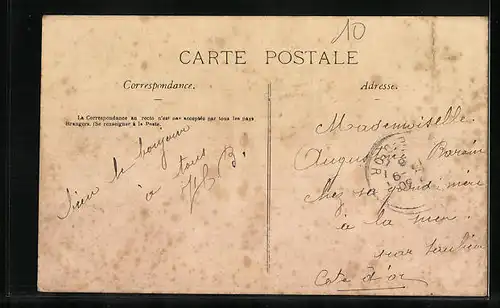 10
CARTE POSTALE
Correspondance.
La Correspondance au recto n'est pas acceptée par tous les pays
étrangers. (Se renseigner à la Poste).
Bien le bonjour
à tous
Adresse.
Mademoiselle
Barain
chez sa grand'mère
à la
par Saulieu
Cote d'or